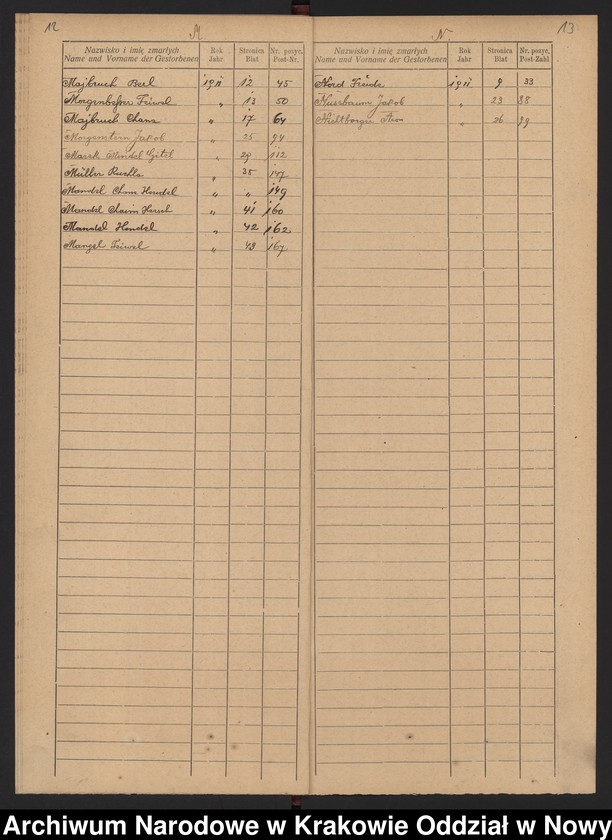 12
M.
Nazwisko i imię zmarłych
Name und Vorname der Gestorbenen
Rok
Jahr
Stronica
Blat
Nr. pozyr.
Post-Nr.
Majbruch Berl 1911 12 45
Morgenbesser Feiwel " 13 50
Majbruch Chana " 17 64
Morgenstern Jakob " 25 94
Marek Hindel Gitel " 29 112
Müller Ruchla " 38 147
Mandel Chm Hendel " " 149
Mandel Chaim Hersch " 41 160
Mandel Hendel " 42 162
Manzel Feiwel " 43 167
N.
13
Nazwisko i imię zmarłych
Name und Vorname der Gestorbenen
Rok
Jahr
Stronica
Blat
Nr. pozyr.
Post-Zahl
Nord Freude 1911 9 33
Nussbaum Jakob " 23 88
" 26 99
Archiwum Narodowe w Krakowie Oddział w Nowy